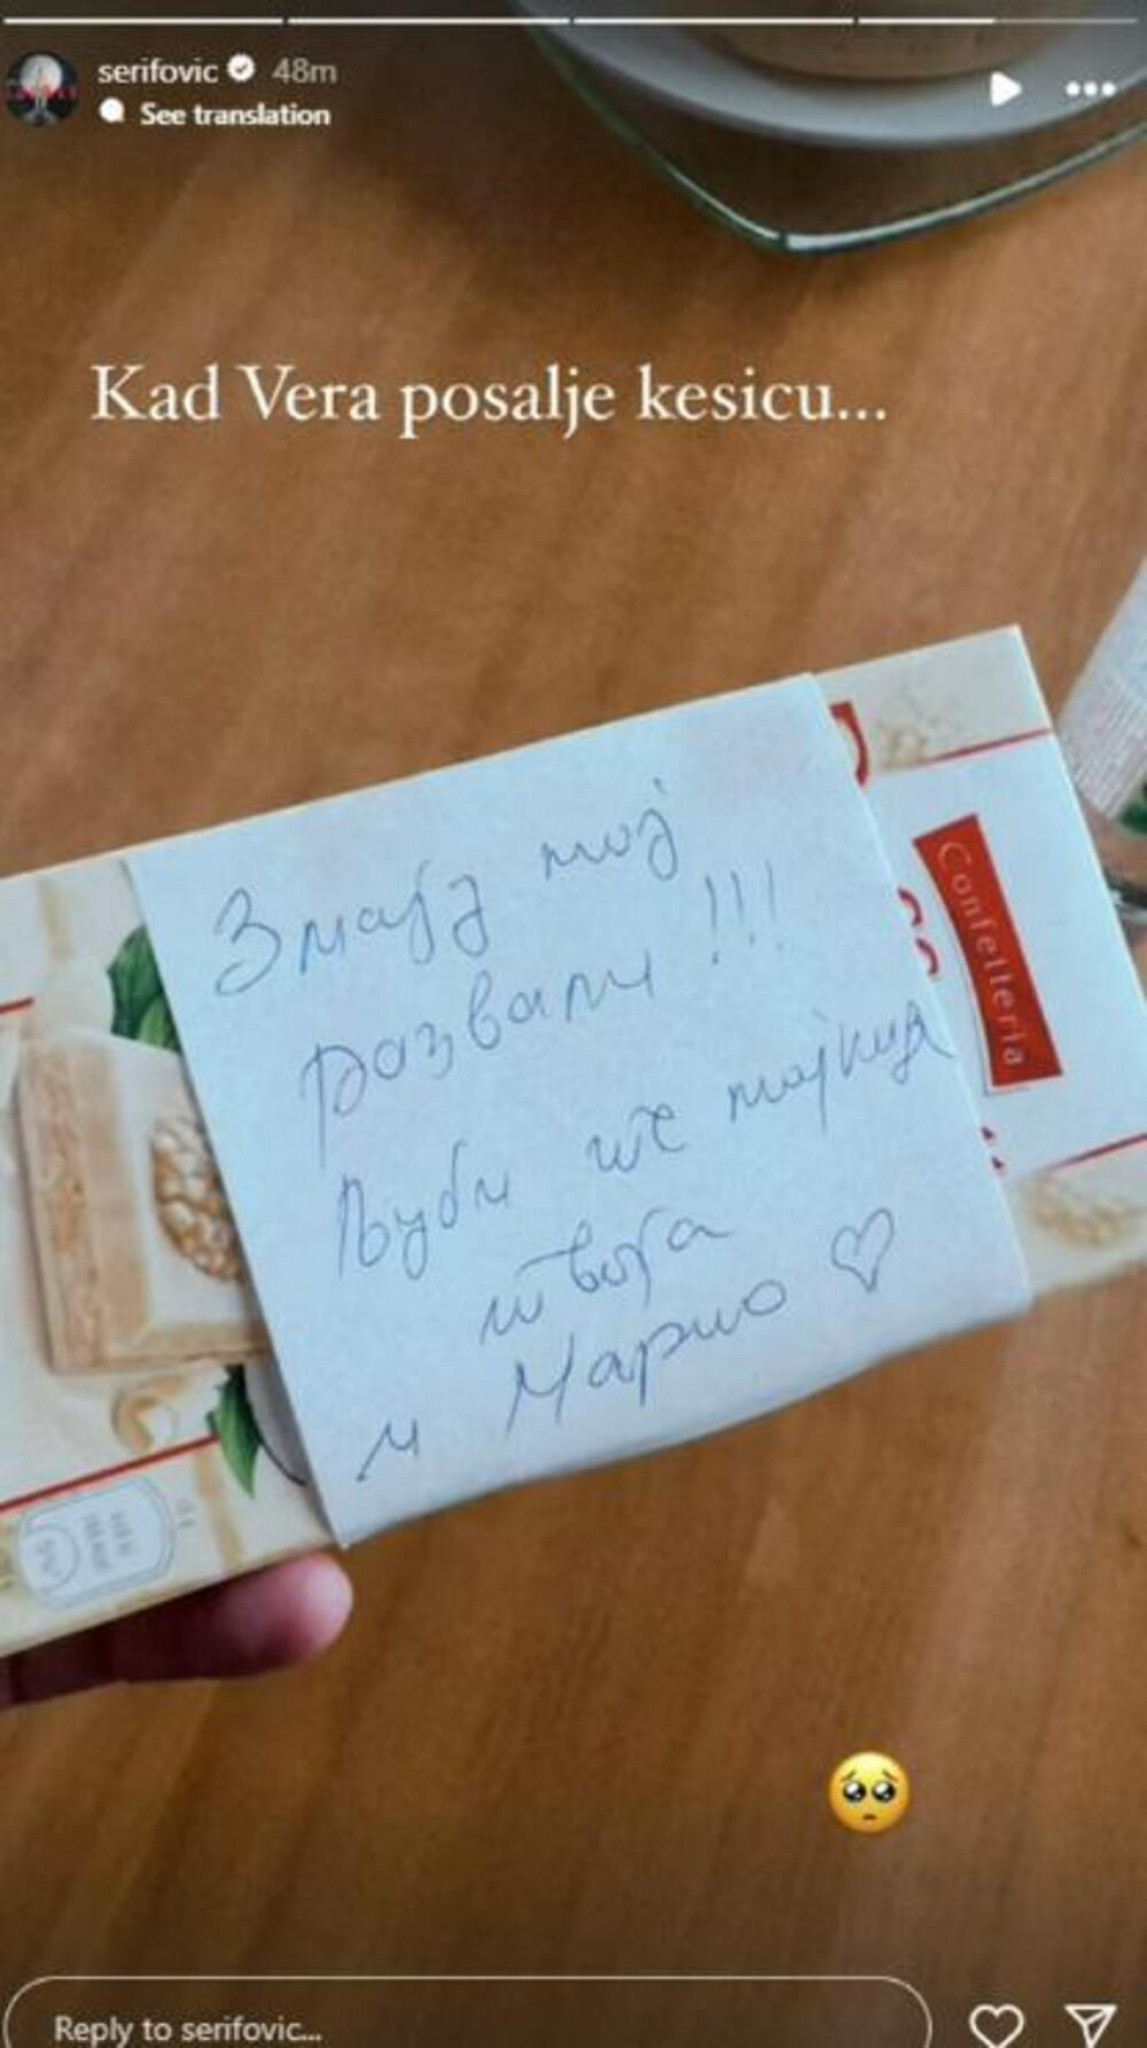 serifovic 48m
See translation
Kad Vera posalje kesicu...
Змају мој
развали !!!
Љуби те мајкица
твоја
и Марио ♡
Confetteria
🥺
Reply to serifovic...